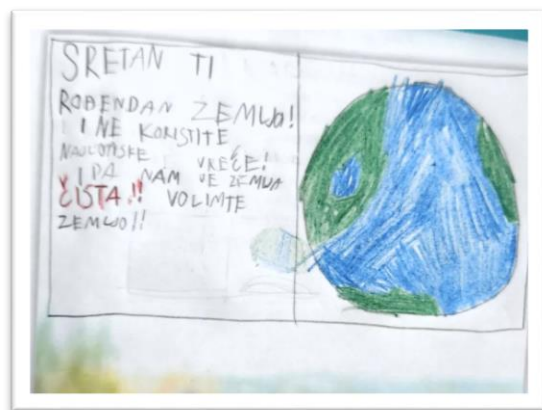 SRETAN TI
ROĐENDAN ZEMLJO!
I NE KORISTITE
NAJLONSKE VREĆE!
I DA NAM JE ZEMLJA
ČISTA!! VOLIMTE
ZEMLJO!!